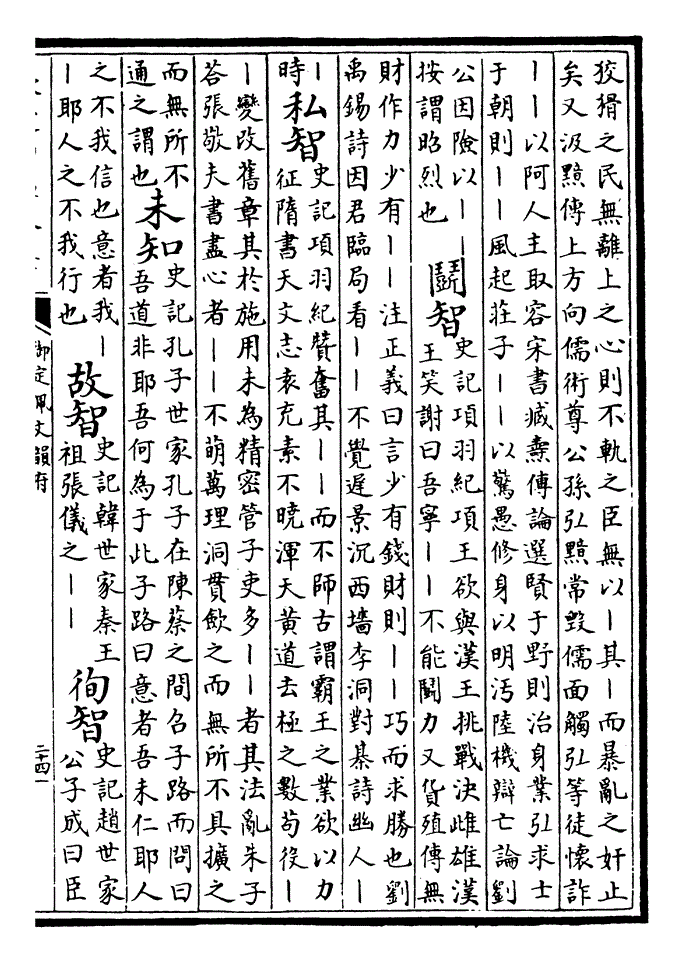 狡猾之民無離上之心則不軌之臣無以｜其｜而暴亂之奸止
矣又汲黯傳上方向儒術尊公孫弘黯常毀儒面觸弘等徒懷詐
｜｜以阿人主取容宋書臧燾傳論選賢于野則治身業弘求士
于朝則｜｜風起莊子｜｜以驚愚修身以明汚陸機辯亡論劉
公因險以｜｜
按謂昭烈也
鬭智
史記項羽紀項王欲與漢王挑戰決雌雄漢
王笑謝曰吾寧｜｜不能鬭力又貨殖傳無
財作力少有｜｜注正義曰言少有錢財則｜｜巧而求勝也劉
禹錫詩因君臨局看｜｜不覺遲景沉西墻李洞對棊詩幽人｜
｜
時
私智
史記項羽紀贊奮其｜｜而不師古謂霸王之業欲以力
征隋書天文志袁充素不曉渾天黄道去極之數苟役｜
｜變改舊章其於施用未為精密管子吏多｜｜者其法亂朱子
荅張敬夫書盡心者｜｜不萌萬理洞貫歛之而無所不具擴之
而無所不
通之謂也
未知
史記孔子世家孔子在陳蔡之間召子路而問曰
吾道非耶吾何為于此子路曰意者吾未仁耶人
之不我信也意者我｜
｜耶人之不我行也
故智
史記韓世家秦王
祖張儀之｜｜
徇智
史記趙世家
公子成曰臣
御定佩文韻府
二十四